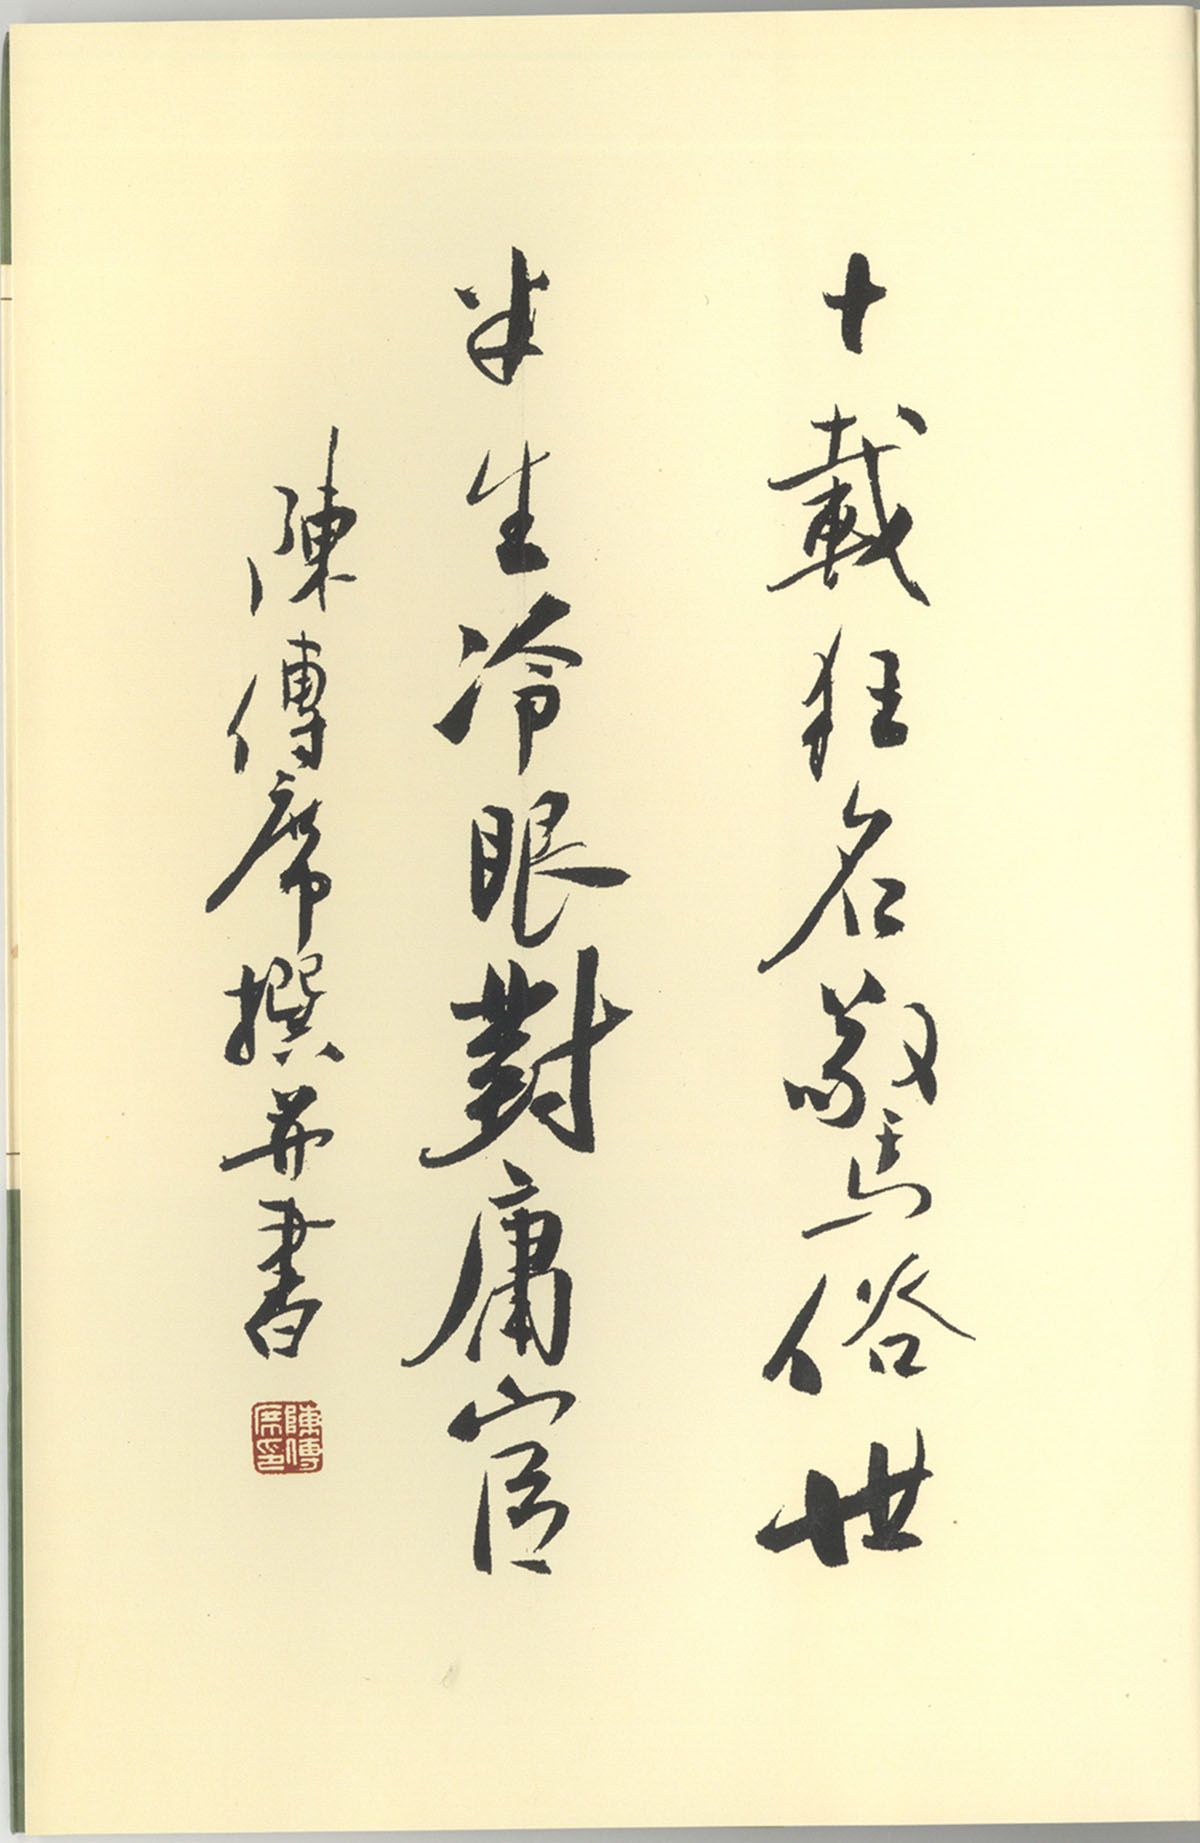 十載狂名驚俗世
半生冷眼對庸官
陳傳席撰并書
陳傳席印